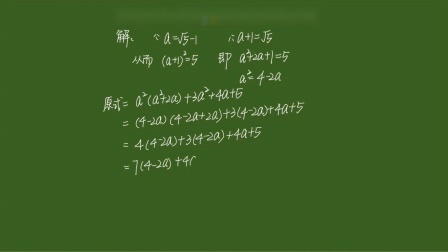 解: ∵ a=√5-1 ∴ a+1=√5
从而 (a+1)²=5 即 a²+2a+1=5
a²=4-2a
原式= a²(a²+2a)+3a²+4a+5
= (4-2a)(4-2a+2a)+3(4-2a)+4a+5
= 4(4-2a)+3(4-2a)+4a+5
= 7(4-2a)+4